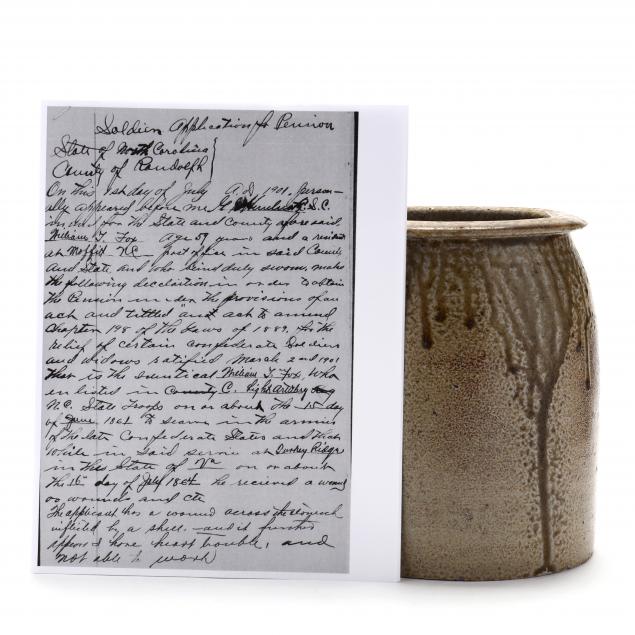 Soldiers Application for Pension
State of North Carolina
County of Randolph
On this 1st day of July A.D. 1901. person-
ally appeared before me C.S.C
in and for the State and County aforesaid
William T. Fox Age 57 years and a resident
at Moffitt N.C. post office in said County
and State and who being duly sworn, makes
the following declaration in order to obtain
the Pension under the provisions of an
act and entitled "an act to amend
Chapter 198 of the Laws of 1889, for the
relief of certain confederate Soldiers
and widows ratified, March 2nd 1901
that is the identical William T. Fox, who
enlisted in County C. Light Artillery
N.C. State Troops on or about the 15 day
of June 1861 to serve in the armies
of the late Confederate States and that
while in said service at Turkey Ridge
in the State of Va on or about
the day of July 1864 he received a wound
or wounds and etc
The applicant has a wound across the stomach
inflicted by a shell, and it further
appears have heart trouble, and
not able to work